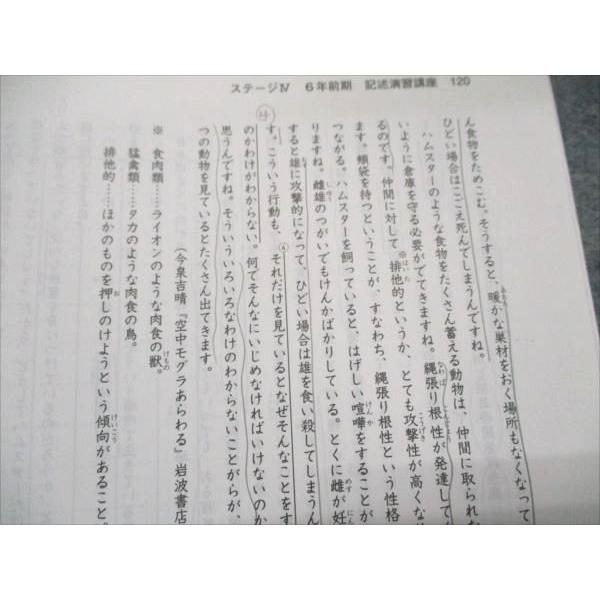 ステージⅣ 6年前期 記述演習講座 120
ん食物をためこむ。そうすると、暖かな巣材をおく場所もなくなって
ひどい場合はこごえ死んでしまうんですね。
ハムスターのような食物をたくさん蓄える動物は、仲間に取られな
いように倉庫を守る必要がでてきますね。縄張り根性が発達して
るのです。仲間に対して※排他的というか、とても攻撃性が高くな
ます。頬袋を持つということが、すなわち、縄張り根性という性格
つながる。ハムスターを飼っていると、はげしい喧嘩をすることが
りますね。雌雄のつがいでもけんかばかりしている。とくに雌が妊
すると雄に攻撃的になって、ひどい場合は雄を食い殺してしまうん
す。こういう行動も、④それだけを見ているとなぜそんなことをす
のかわけがわからない。何でそんなにいじめなければいけないのか
思うんですね。そういういろいろなわけのわからないことがらが、
つの動物を見ているとたくさん出てきます。
(今泉吉晴『空中モグラあらわる』岩波書店
※ 食肉類……ライオンのような肉食の獣。
猛禽類……タカのような肉食の鳥。
排他的……ほかのものを押しのけようという傾向があること。